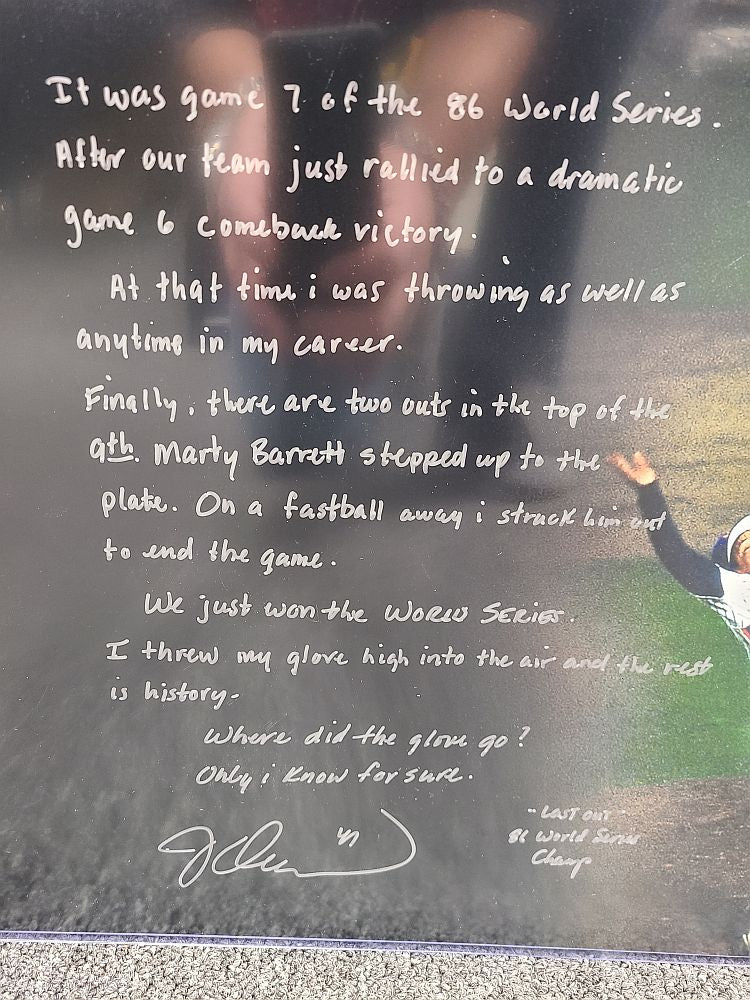 It was game 7 of the 86 World Series.
After our team just rallied to a dramatic
game 6 comeback victory.
At that time i was throwing as well as
anytime in my career.
Finally, there are two outs in the top of the
9th. Marty Barrett stepped up to the
plate. On a fastball away i struck him out
to end the game.
We just won the WORLD SERIES.
I threw my glove high into the air and the rest
is history-
Where did the glove go?
Only i know for sure.
"LAST OUT"
86 World Series
Champ